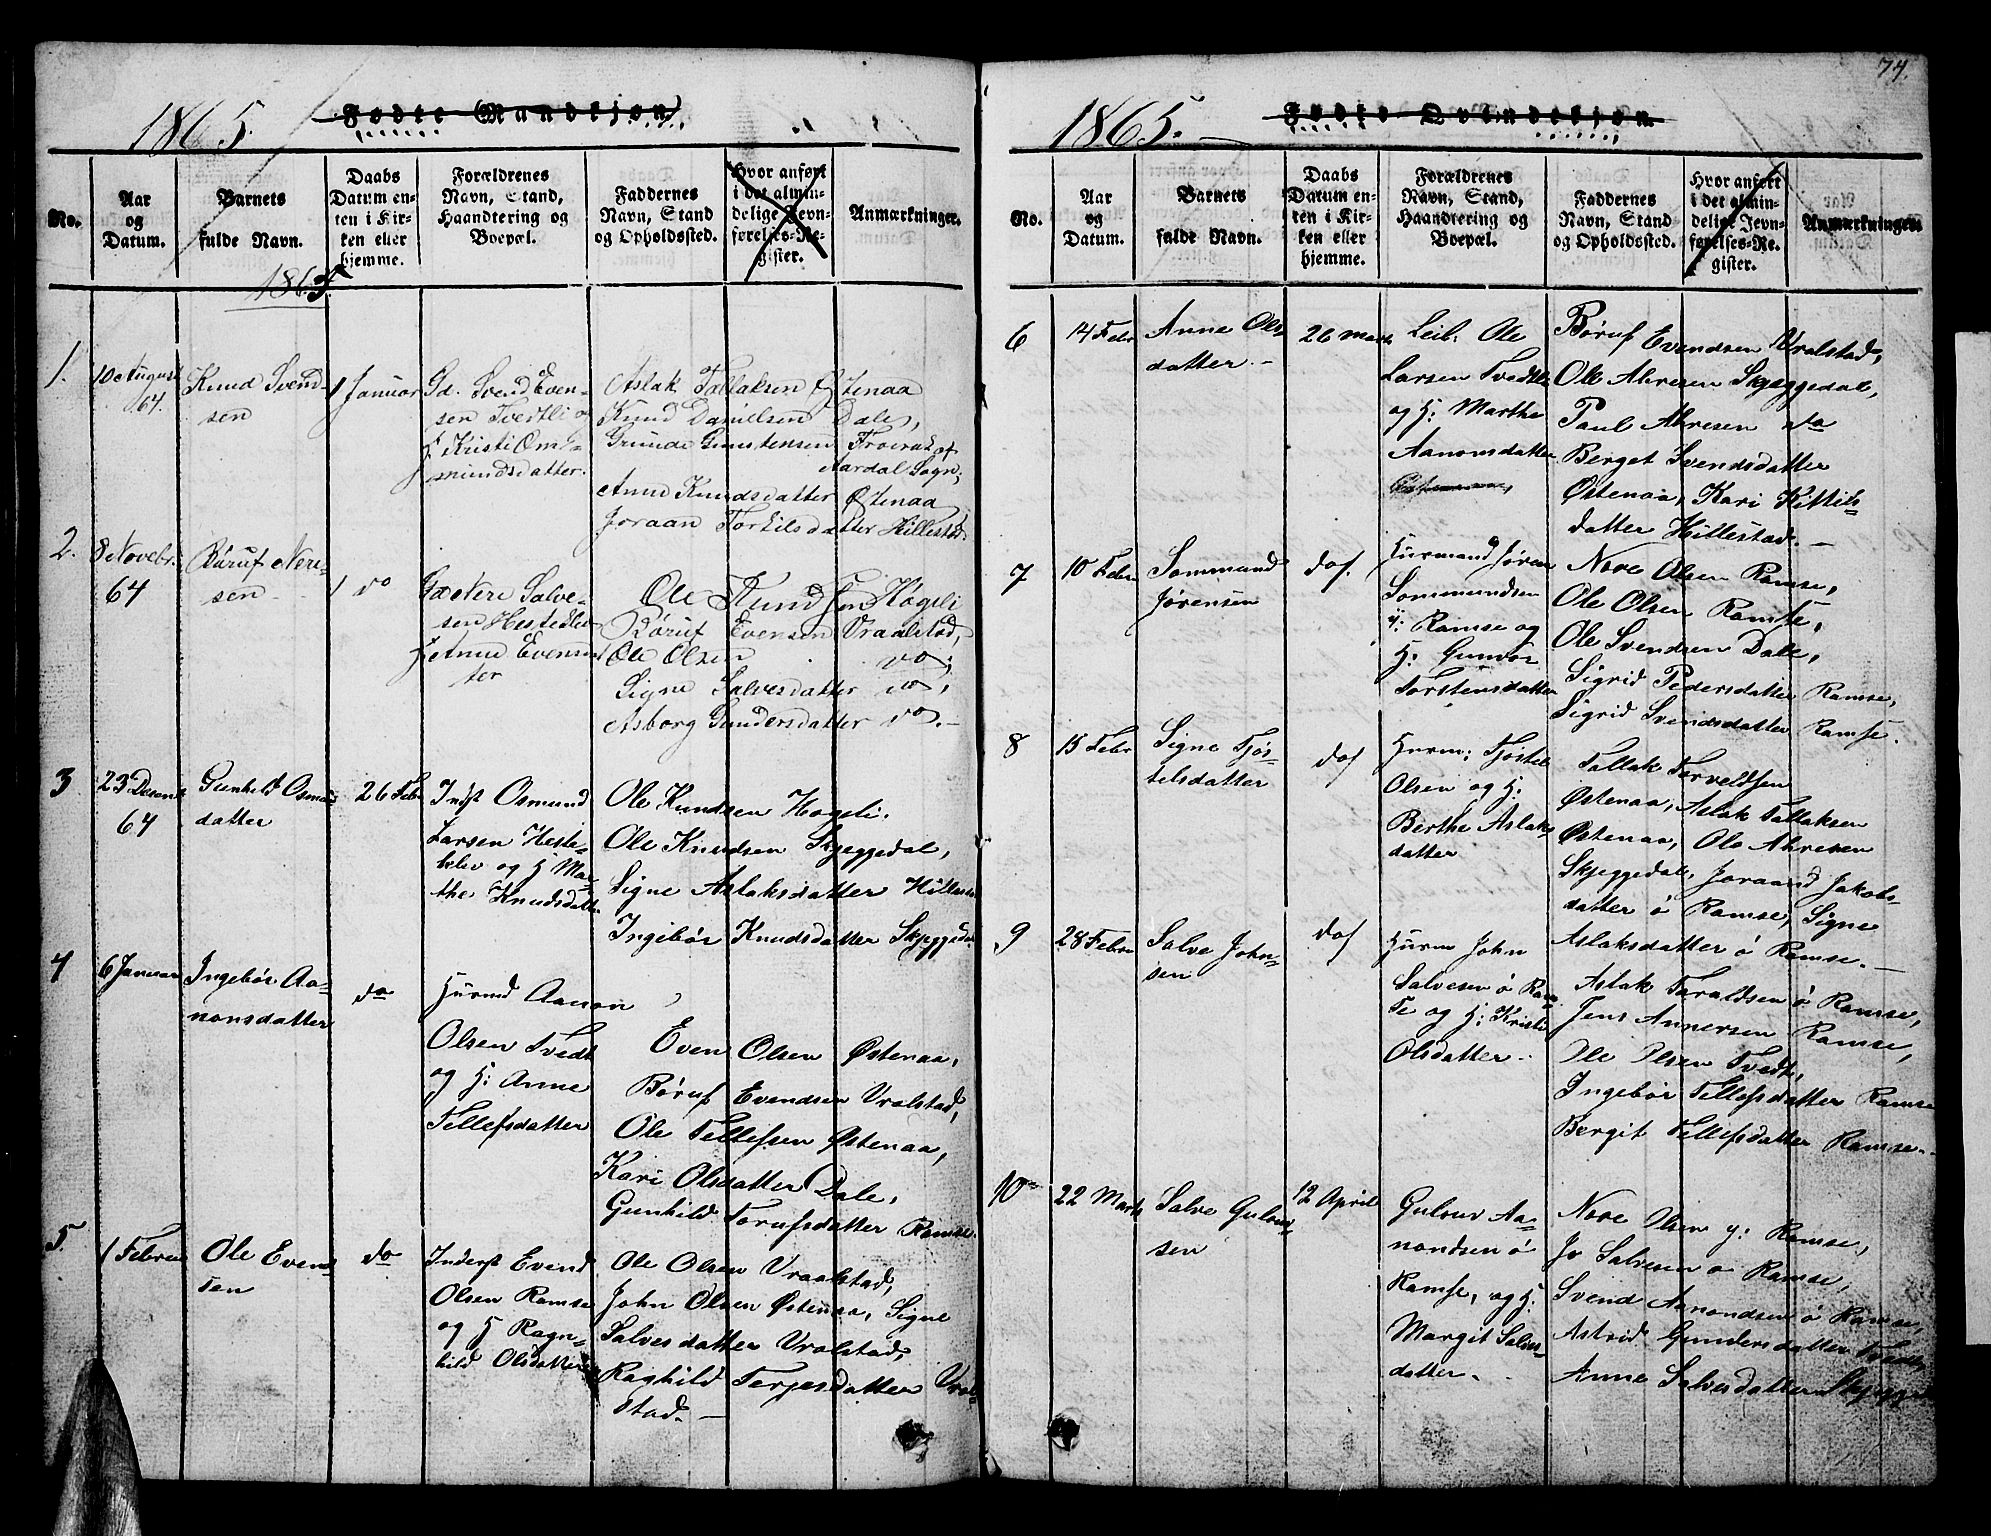 1865.
Fødte Mandkjøn.
No.
Aar og Datum.
Barnets fulde Navn.
Daabs Datum enten i Kirken eller hjemme.
Forældrenes Navn, Stand, Haandtering og Boepæl.
Faddernes Navn, Stand og Opholdssted.
Hvor anført i det almindelige Jevnførelses-Register.
Anmærkninger.
1865.
1.
10 August
64.
Knud Svend-
sen
1 Januar
Gd. Svend Even-
sen Tvedtli og
H Kristi Om-
mundsdatter.
Aslak Tallaksen Østenaa
Knud Danielsen Dale,
Grunde Gunstensen
Aardal Sogn,
Anne Knudsdatter Østenaa
Joraan Torkilsdatter Hillestad.
2.
8 Novebr.
64
Børuf Nere-
sen
1 do
Nere Salve-
sen
H Anne Evens
ter
Ole Knudsen Hogeli
Børuf Evensen Vraalstad,
Ole Olsen do,
Signe Salvesdatter do,
Asborg Gundersdatter do.-
3
23 Decemb
64
Gunhild Osmu
datter
26 Feb
Inst Osmund
Larsen Heste-
klev og H Mar-
the Knudsdatte
Ole Knudsen Hogeli.
Ole Knudsen Skjeggedal,
Signe Aslaksdatter Hillesta
Ingebør Knudsdatter Skjeggeda
4
6 Januar
Ingebør Aa-
nonsdatter
do
Hurmd Aanon
Olsen Tvedt
og H: Anne
Tellefsdatter
Even Olsen Østenaa,
Børuf Evendsen Vralstad,
Ole Tellefsen Østenaa,
Kari Olsdatter Dale,
Gunhild Torufsdatter Ramse.
5.
1 Februa
Ole Evend-
sen
do
Inderst Evend
Olsen Ramse
og H Ragn-
hild Olsdatter
Ole Olsen Vraalstad,
John Olsen Østenaa, Signe
Salvesdatter Vralstad,
Raghild Terjesdatter Vral-
stad.-
74.
1865.
Fødte Qvindekjøn.
No.
Aar og Datum.
Barnets fulde Navn.
Daabs Datum enten i Kirken eller hjemme.
Forældrenes Navn, Stand, Haandtering og Boepæl.
Faddernes Navn, Stand og Opholdssted.
Hvor anført i det almindelige Jevnførelses-Register.
Anmærkninger.
6
14 Febr
Anne Ols-
datter.-
26 Marts
Leib. Ole
Larsen Tvedtli
og H: Marthe
Aanonsdatter
Børuf Evendsen Vralstad,
Ole Alvesen Skjeggedal,
Paul Alvesen do
Berget Svendsdatter
Østenaa, Kari Kittils-
datter Hillestad.-
7
10 Febr
Sommund
Jørensen
do/.
Hurmand Jøren
Sommundsen
y: Ramse og
H: Gunvor
Torstensdatter
Nore Olsen Ramse,
Ole Olsen Ramse,
Ole Svendsen Dale,
Sigrid Pedersdatter Ramse,
Sigrid Svendsdatter Ramse.
8
15 Febr
Signe Tjøs-
telsdatter
do/
Hurm: Tjøstel
Olsen og H:
Berthe Aslaks
datter
Tallak Torveldsen
Østenaa, Aslak Tallaksen
Østenaa, Ole Alvesen
Skjeggedal, Joraand Jakobs-
datter ø Ramse, Signe
Aslaksdatter ø Ramse.-
9
28 Febru
Salve John-
sen
do/
Hurm John
Salvesen ø Ram
se og H: Kristi
Olsdatter.
Aslak Taraldsen ø Ramse,
Jens Annersen Ramse,
Ole Olsen Tvedt,
Ingebør Tellefsdatter Ramse
Bergit Tellefsdatter Ramse.-
10
22 Marts
Salve Gulouv-
sen
12 April
Gulouv Aa-
nondsen ø
Ramse, og H:
Margit Salves-
datter.
Nore Olsen y: Ramse,
Jo Salvesen ø Ramse,
Svend Aanondsen ø Ramse,
Astrid Gundersdatter Tvedt,
Anne Salvesdatter Skjegge